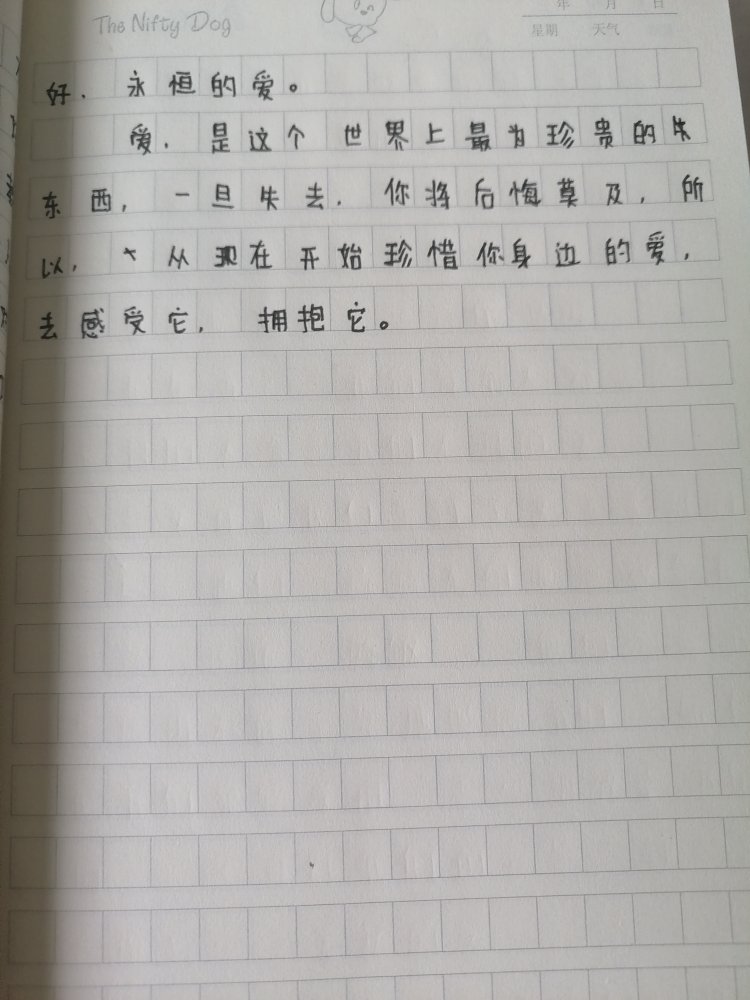 The Nifty Dog
年 月 日
星期 天气
好，永恒的爱。
爱，是这个世界上最为珍贵的失
东西，一旦失去，你将后悔莫及，所
以，从现在开始珍惜你身边的爱，
去感受它，拥抱它。